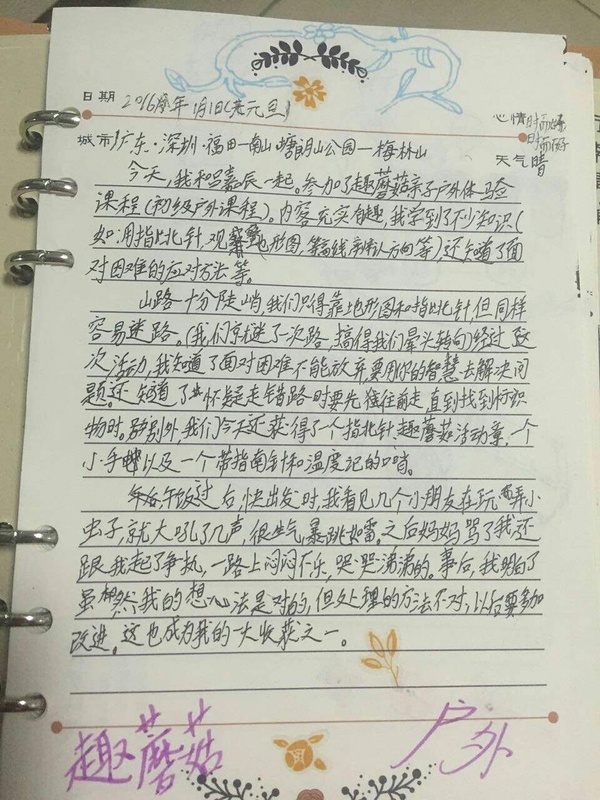 日期 2016年1月1日(元旦)
心情时而爆
时而好
城市广东·深圳·福田一南山塘朗山公园一梅林山
天气晴
今天,我和吕嘉辰一起。参加了趣蘑菇亲子户外体验
课程(初级户外课程)。内容充实有趣,我学到了不少知识(
如:用指北针,观察地形图,等高线,辨认方向等)还知道了面
对困难的应对方法等。
山路十分陡峭,我们只得靠地形图和指北针,但同样
容易迷路。(我们就迷了一次路,搞得我们晕头转向)经过这
次活动,我知道了面对困难不能放弃,要用你的智慧去解决问
题。还知道了怀疑走错路时要先往前走直到找到标识
物时。另外,我们今天还获得了个指北针,趣蘑菇活动章,一个
小手以及一个带指南针和温度记的口哨。
午饭过后,快出发时,我看见几个小朋友在玩弄小
虫子,就大吼了几声,很生气,暴跳如雷。之后妈妈骂了我,还
跟我起了争执,一路上闷闷不乐,哭哭涕涕的。事后,我明白了
虽然我的想法是对的,但处理的方法不对,以后要多加
改进。这也成为我的一大收获之一。
趣蘑菇 户外